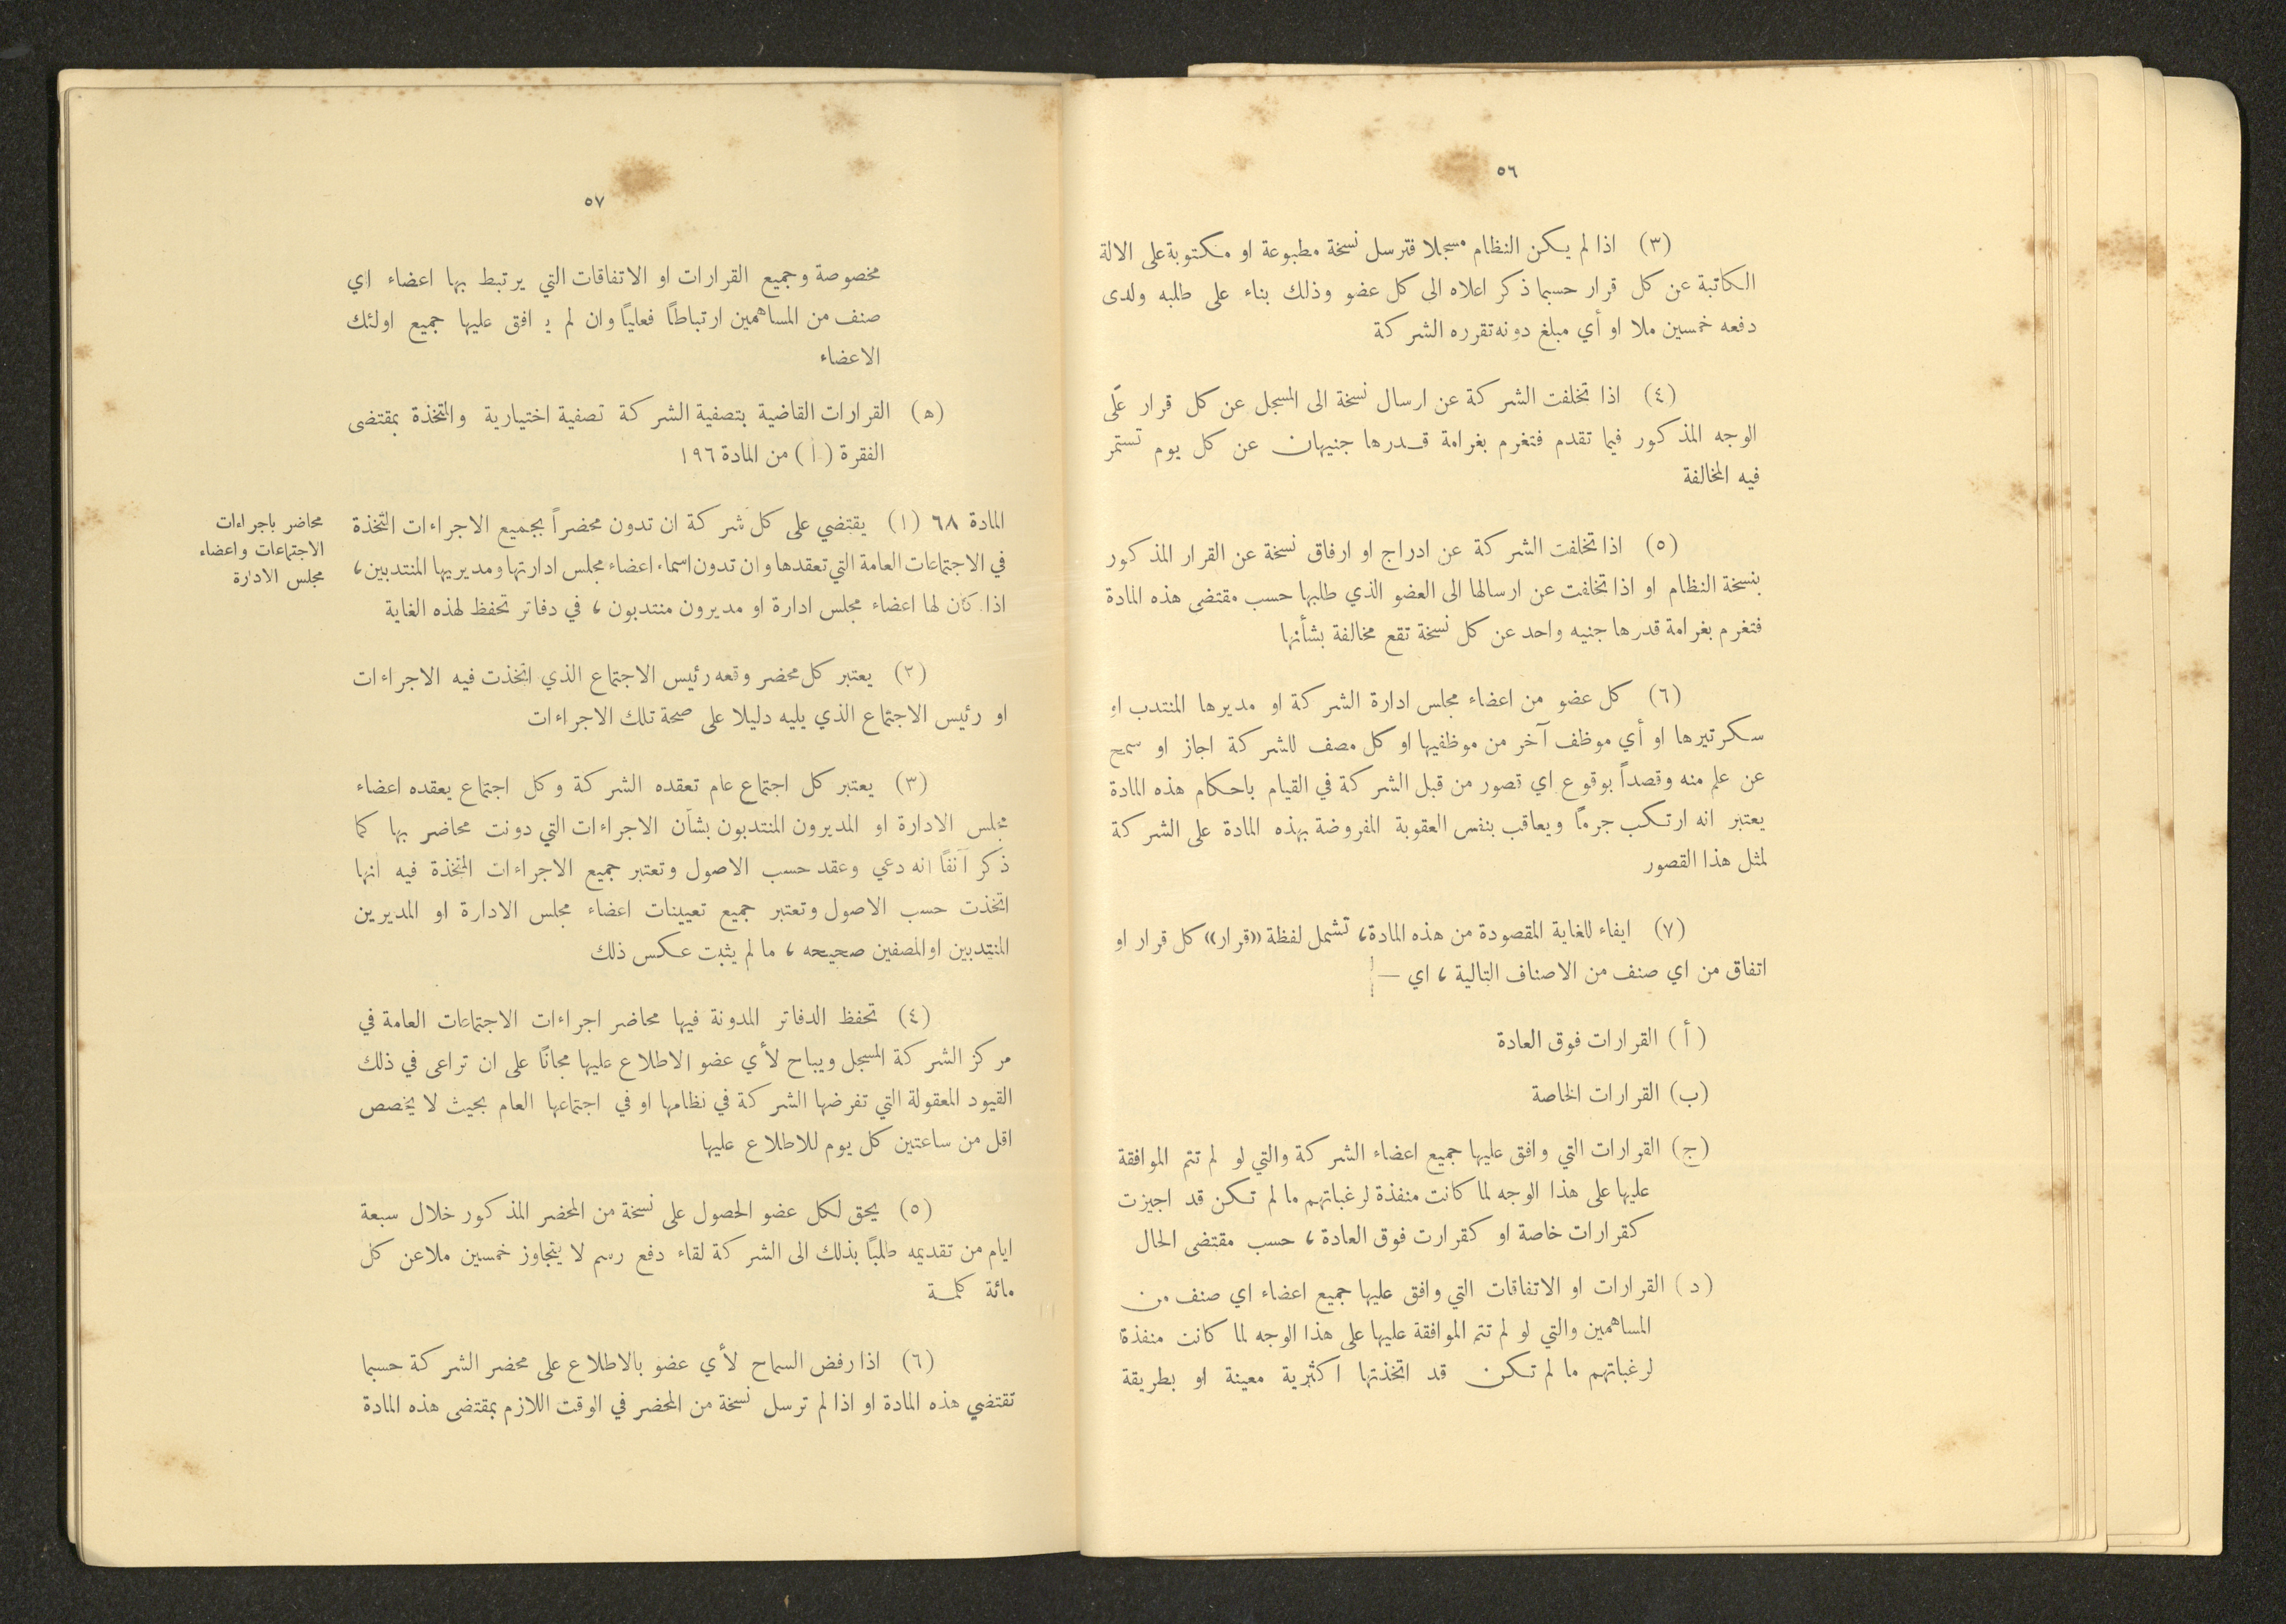 ٥٦
(٣) اذا لم يكن النظام مسجلا فترسل نسخة مطبوعة او مكتوبة على الالة
الكاتبة عن كل قرار حسبما ذكر اعلاه الى كل عضو وذلك بناء على طلبه ولدى
دفعه خمسين ملا او أي مبلغ دونه تقرره الشركة
(٤) اذا تخلفت الشركة عن ارسال نسخة الى المسجل عن كل قرار على
الوجه المذكور فيما تقدم فتغرم بغرامة قدرها جنيهان عن كل يوم تستمر
فيه المخالفة
(٥) اذا تخلفت الشركة عن ادراج او ارفاق نسخة عن القرار المذكور
بنسخة النظام او اذا تخلفت عن ارسالها الى العضو الذي طلبها حسب مقتضى هذه المادة
فتغرم بغرامة قدرها جنيه واحد عن كل نسخة تقع مخالفة بشأنها
(٦) كل عضو من اعضاء مجلس ادارة الشركة او مديرها المنتدب او
سكرتيرها او أي موظف آخر من موظفيها او كل مصف للشركة اجاز او سمح
عن علم منه وقصداً بوقوع اي قصور من قبل الشركة في القيام باحكام هذه المادة
يعتبر انه ارتكب جرماً ويعاقب بنفس العقوبة المفروضة بهذه المادة على الشركة
لمثل هذا القصور
(٧) ايفاء للغاية المقصودة من هذه المادة، تشمل لفظة «قرار» كل قرار او
اتفاق من اي صنف من الاصناف التالية ، اي —
(أ) القرارات فوق العادة
(ب) القرارات الخاصة
(ج) القرارات التي وافق عليها جميع اعضاء الشركة والتي لو لم تتم الموافقة
عليها على هذا الوجه لما كانت منفذة لرغباتهم ما لم تكن قد اجيزت
كقرارات خاصة او كقرارت فوق العادة ، حسب مقتضى الحال
(د) القرارات او الاتفاقات التي وافق عليها جميع اعضاء اي صنف من
المساهمين والتي لو لم تتم الموافقة عليها على هذا الوجه لما كانت منفذة
لرغباتهم ما لم تكن قد اتخذتها اكثرية معينة او بطريقة
٥٧
مخصوصة وجميع القرارات او الاتفاقات التي يرتبط بها اعضاء اي
صنف من المساهمين ارتباطاً فعلياً وان لم يوافق عليها جميع اولئك
الاعضاء
(ه) القرارات القاضية بتصفية الشركة تصفية اختيارية والمتخذة بمقتضى
الفقرة (أ) من المادة ١٩٦
محاضر باجراءات
الاجتماعات واعضاء
مجلس الادارة
المادة ٦٨ (١) يقتضي على كل شركة ان تدون محضراً بجميع الاجراءات المتخذة
في الاجتماعات العامة التي تعقدها وان تدون اسماء اعضاء مجلس ادارتها ومديريها المنتدبين،
اذا كان لها اعضاء مجلس ادارة او مديرون منتدبون ، في دفاتر تحفظ لهذه الغاية
(٢) يعتبر كل محضر وقعه رئيس الاجتماع الذي اتخذت فيه الاجراءات
او رئيس الاجتماع الذي يليه دليلا على صحة تلك الاجراءات
(٣) يعتبر كل اجتماع عام تعقده الشركة وكل اجتماع يعقده اعضاء
مجلس الادارة او المديرون المنتدبون بشأن الاجراءات التي دونت محاضر بها كما
ذكر آنفاً انه دعي وعقد حسب الاصول وتعتبر جميع الاجراءات المتخذة فيه انها
اتخذت حسب الاصول وتعتبر جميع تعيينات اعضاء مجلس الادارة او المديرين
المنتدبين او المصفين صحيحه ، ما لم يثبت عكس ذلك
(٤) تحفظ الدفاتر المدونة فيها محاضر اجراءات الاجتماعات العامة في
مركز الشركة المسجل ويباح لأي عضو الاطلاع عليها مجاناً على ان تراعى في ذلك
القيود المعقولة التي تفرضها الشركة في نظامها او في اجتماعها العام بحيث لا يخصص
اقل من ساعتين كل يوم للاطلاع عليها
(٥) يحق لكل عضو الحصول على نسخة من المحضر المذكور خلال سبعة
ايام من تقديمه طلباً بذلك الى الشركة لقاء دفع رسم لا يتجاوز خمسين ملا عن كل
مائة كلمة
(٦) اذا رفض السماح لأي عضو بالاطلاع على محضر الشركة حسبما
تقتضي هذه المادة او اذا لم ترسل نسخة من المحضر في الوقت اللازم بمقتضى هذه المادة